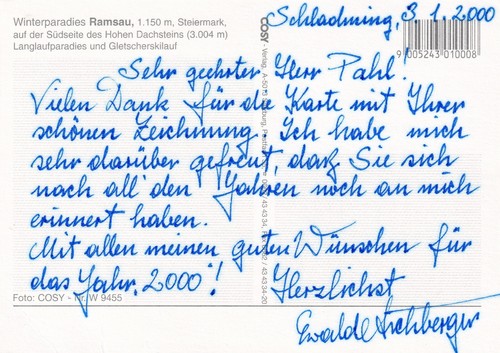 Winterparadies Ramsau, 1.150 m, Steiermark,
auf der Südseite des Hohen Dachsteins (3.004 m)
Langlaufparadies und Gletscherskilauf
Schladming, 3 1. 2000
9 005243 010008
Sehr geehrter Herr Pahl!
Vielen Dank für die Karte mit Ihrer
schönen Zeichnung! Ich habe mich
sehr darüber gefreut, daß Sie sich
nach all' den Jahren noch an mich
erinnert haben.
Mit allen meinen guten Wünschen für
das Jahr „2000"! Herzlichst
Foto: COSY - Nr. W 9455
Ewalde Eichberger
COSY - Verlag, A-50